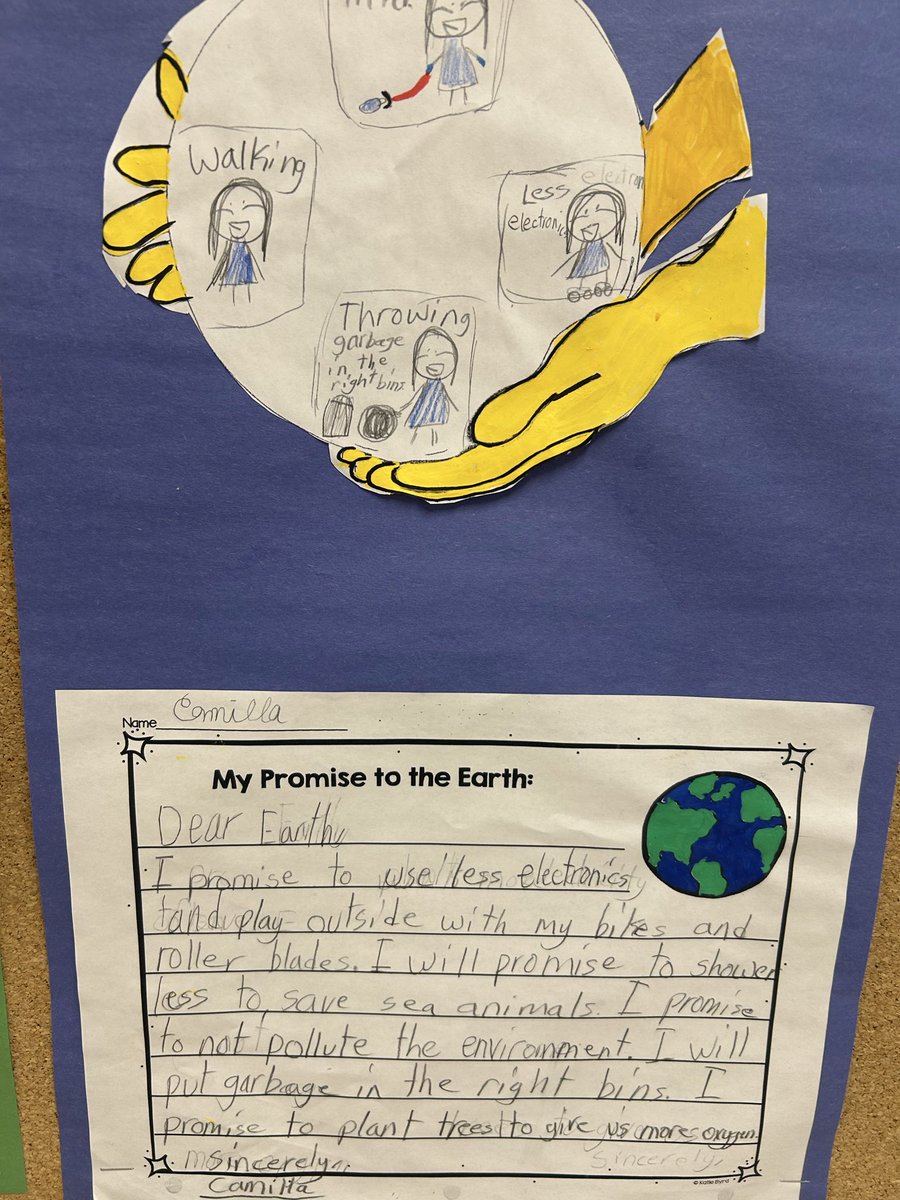 Walking
Less electron
electronic
Throwing
garbage
in the
right bins
Name Camilla
My Promise to the Earth:
Dear Earth,
I promise to use less electronics
and play outside with my bikes and
roller blades. I will promise to shower
less to save sea animals. I promise
to not pollute the enviromment. I will
put garbage in the right bins. I
promise to plant trees to give us more oxygen
sincerely,
Sincerely,
Camilla
© Katie Byrd